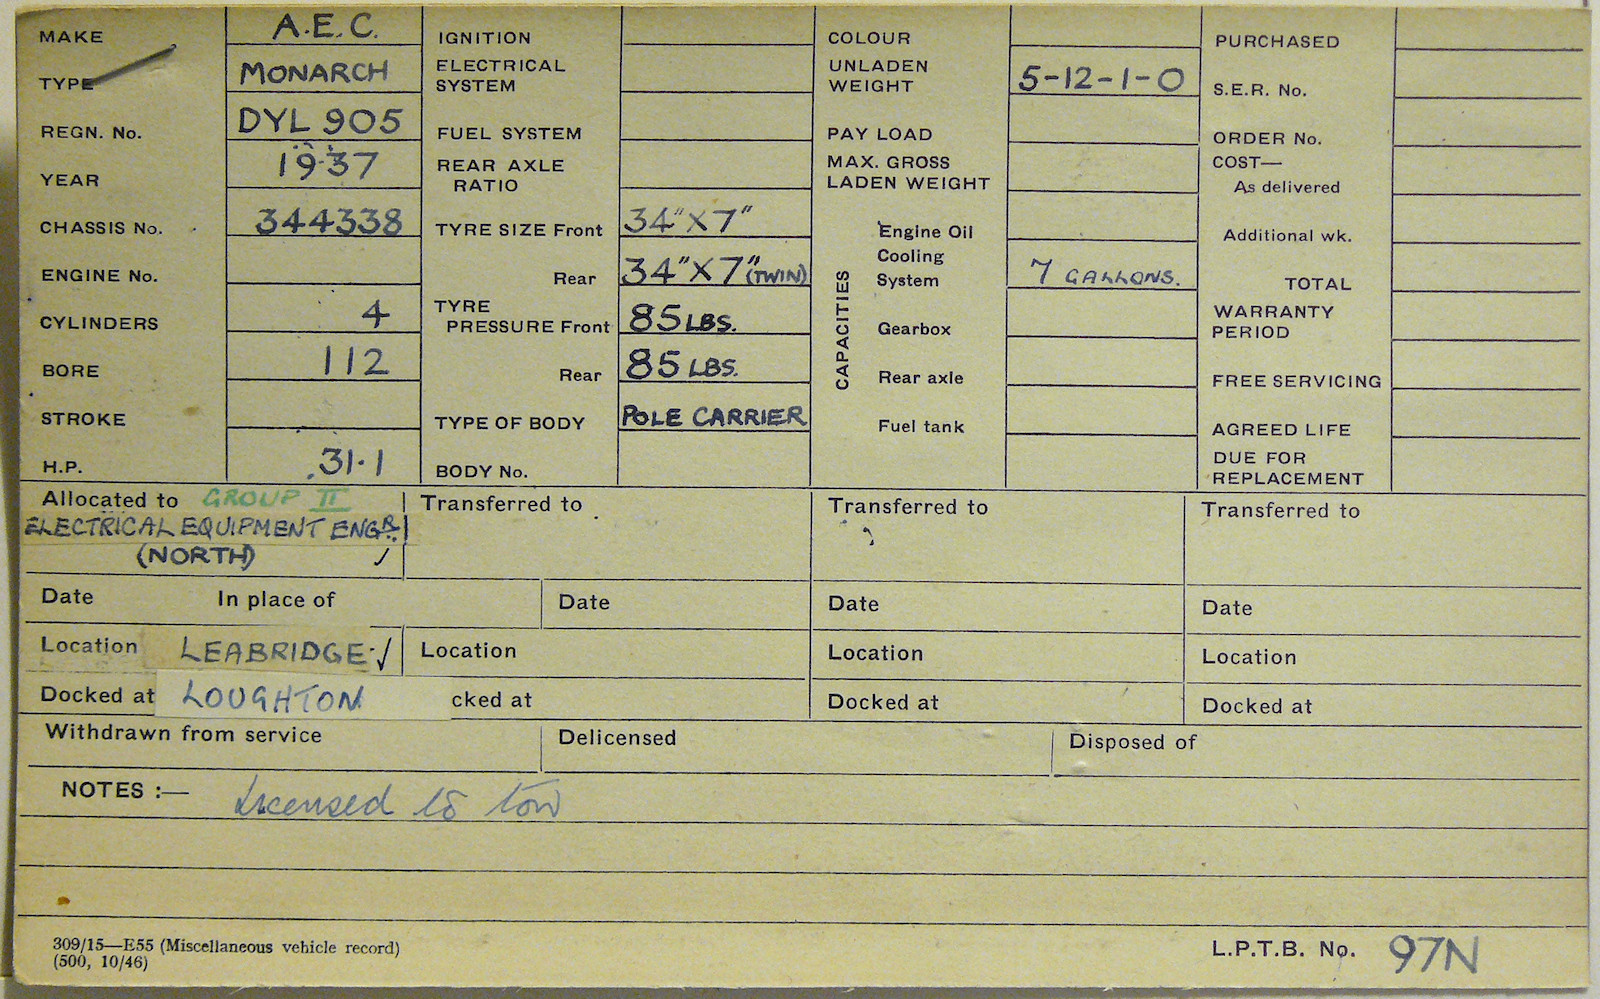 MAKE A.E.C. IGNITION COLOUR PURCHASED
TYPE MONARCH ELECTRICAL SYSTEM UNLADEN WEIGHT 5-12-1-0 S.E.R. No.
REGN. No. DYL 905 FUEL SYSTEM PAY LOAD ORDER No.
YEAR 1937 REAR AXLE RATIO MAX. GROSS LADEN WEIGHT COST— As delivered
CHASSIS No. 344338 TYRE SIZE Front 34"X7" CAPACITIES Engine Oil Additional wk.
ENGINE No. Rear 34"X7" (TWIN) Cooling System 7 GALLONS. TOTAL
CYLINDERS 4 TYRE PRESSURE Front 85 LBS. Gearbox WARRANTY PERIOD
BORE 112 Rear 85 LBS. Rear axle FREE SERVICING
STROKE TYPE OF BODY POLE CARRIER Fuel tank AGREED LIFE
H.P. 31.1 BODY No. DUE FOR REPLACEMENT
Allocated to GROUP II Transferred to Transferred to Transferred to
ELECTRICAL EQUIPMENT ENGR.
(NORTH) ✓
Date In place of Date Date Date
Location LEABRIDGE ✓ Location Location Location
Docked at LOUGHTON cked at Docked at Docked at
Withdrawn from service Delicensed Disposed of
NOTES :— Licensed to tow
309/15—E55 (Miscellaneous vehicle record)
(500, 10/46)
L.P.T.B. No. 97N